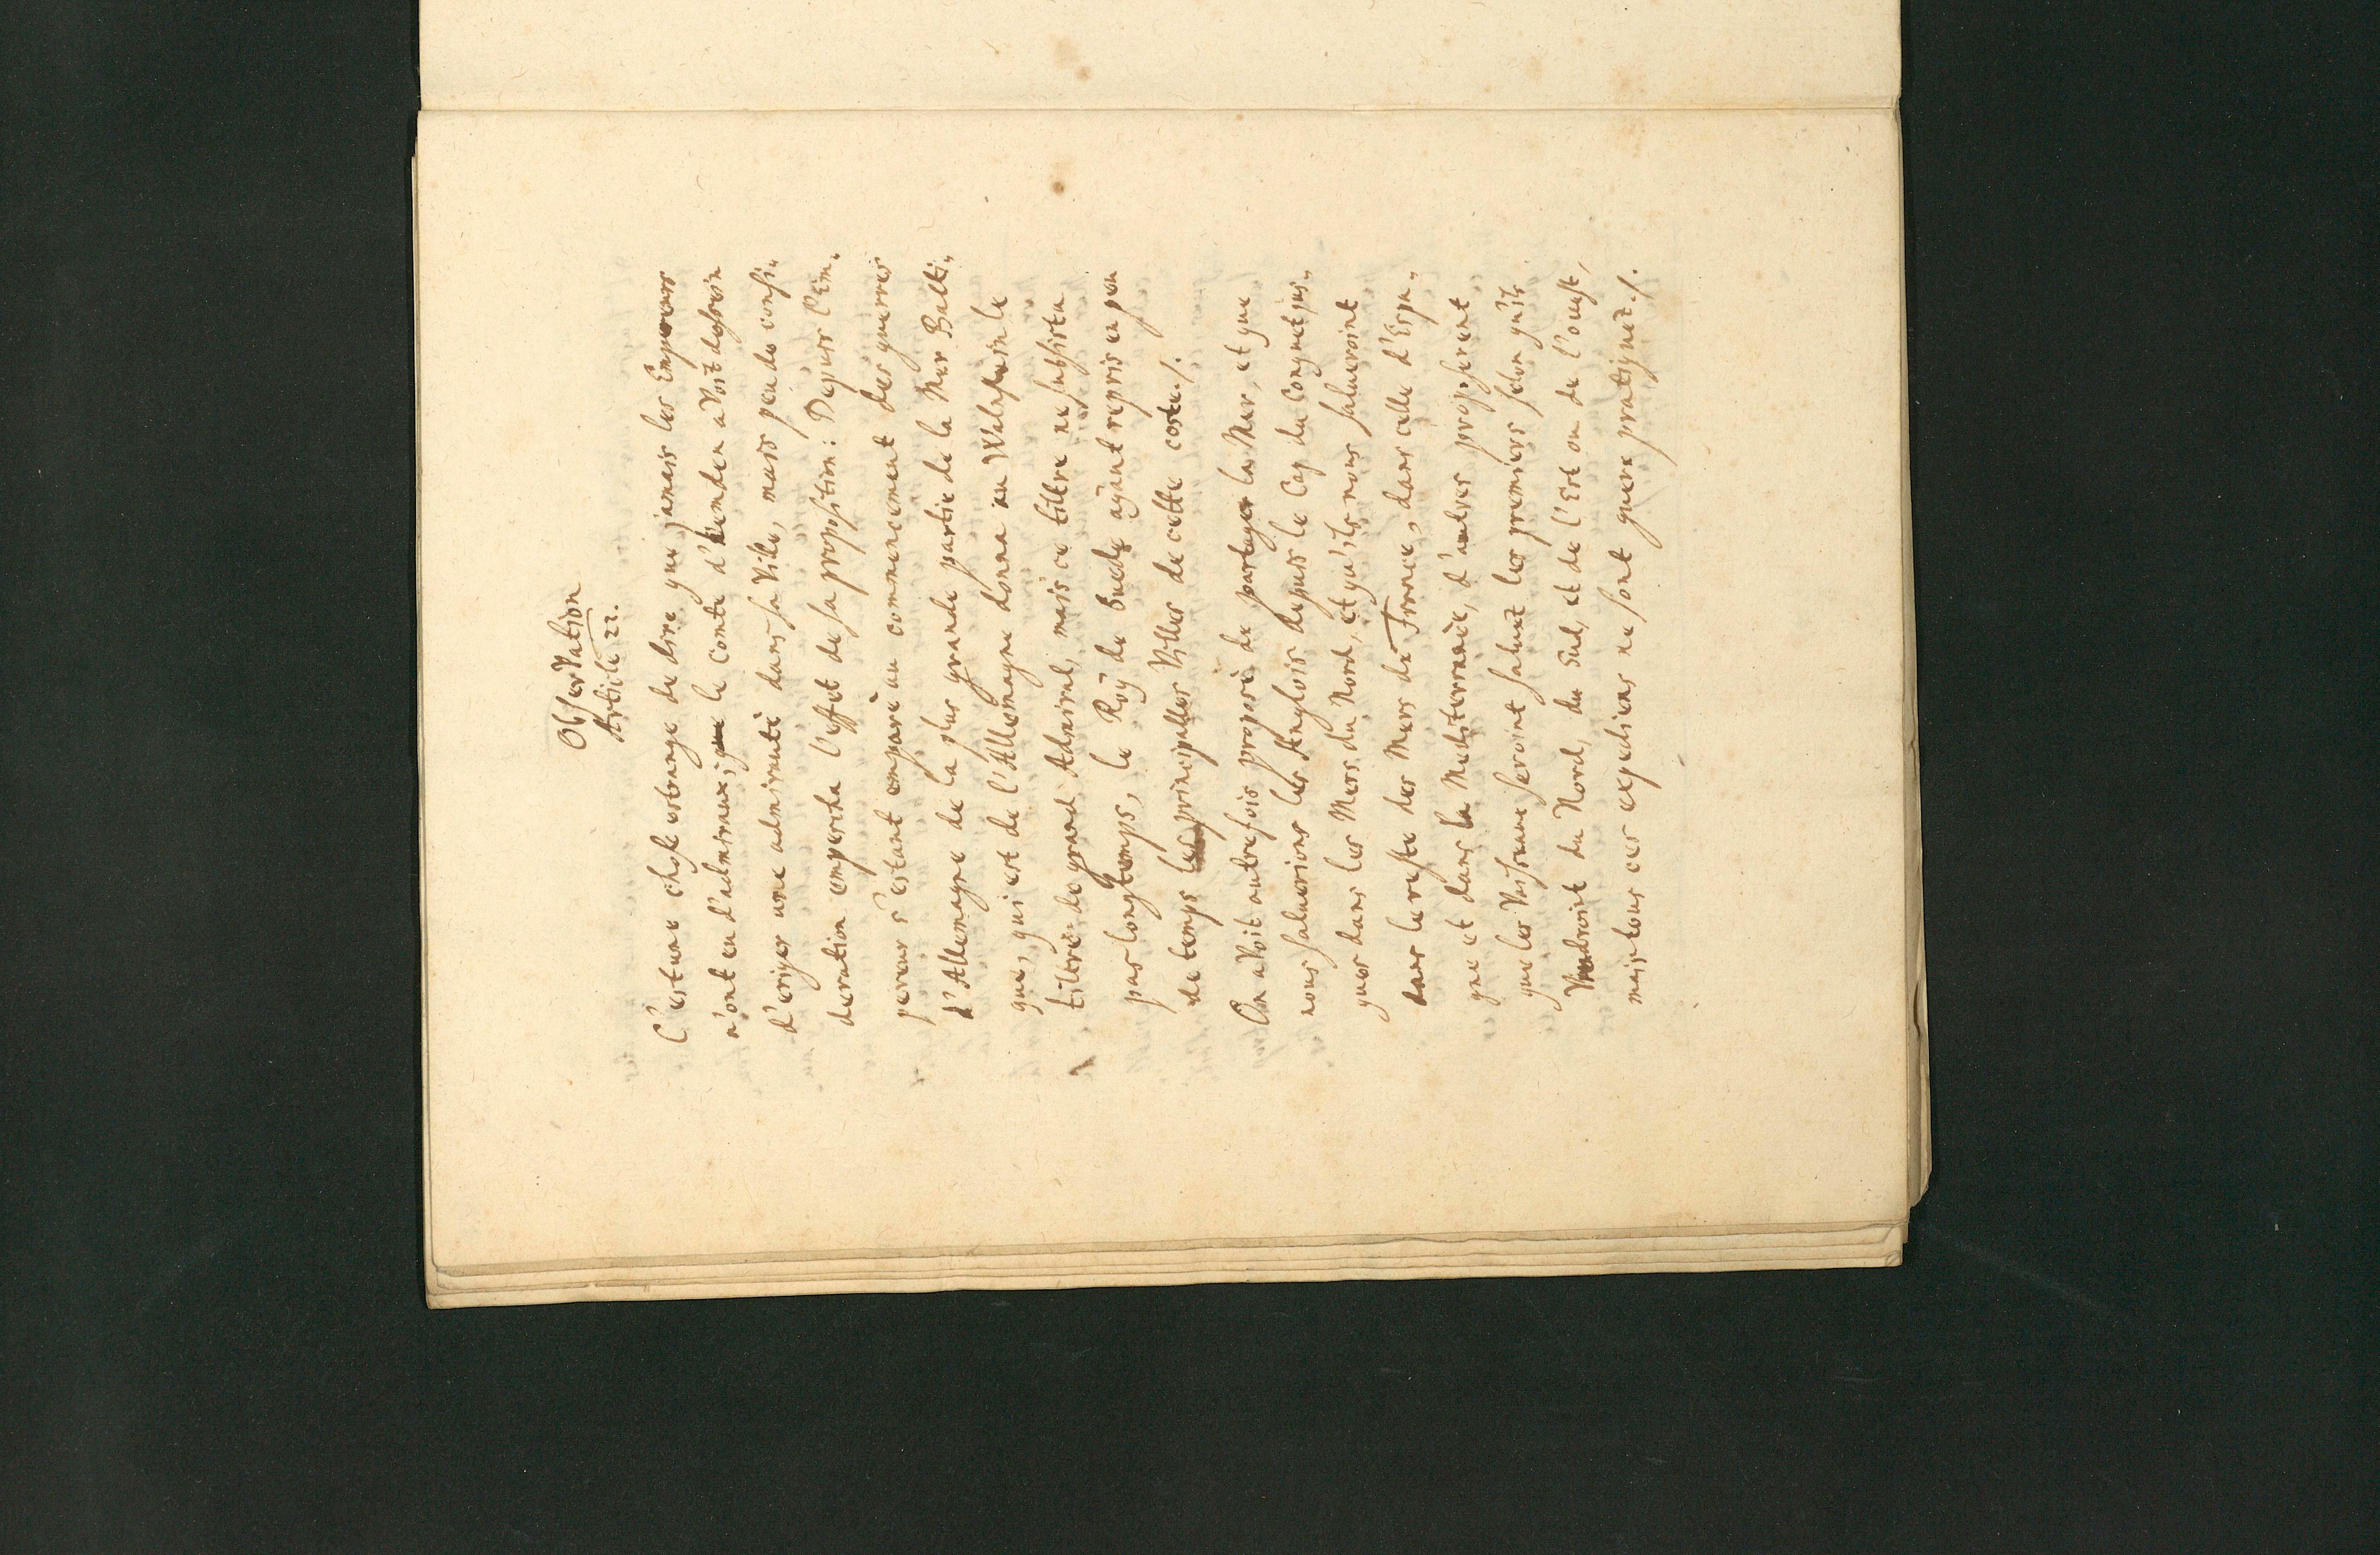 ObserVation
Article 22.
C'est une chose estrange de dire que jamais les Empereurs
n'ont eu d'admiraux; que le Comte d'Emden aVoit dessein
d'eriger une admirauté dans sa Ville, mais peu de consi„
deration empescha l'effet de sa proposition: Depuis l'Em„
pereur s'estant emparè au commencement des guerres
d'Allemagne de la plus grande partie de la Mer Balti„
que, qui est de l'Allemagne donna au Walestein le
tiltre de grand Admiral, mais ce tiltre ne subsista
pas longtemps, le Roÿ de Suede aÿant repris en peu
de temps les principalles Villes de cette coste./.
On aVoit autrefois proposè de partager la Mer, et que
nous saluerions les Anglois depuis le Cap du Conquet jus„
ques dans les Mers du Nord, et qu'ils nous salueroint
dans le reste des Mers de France, dans celle d'Espa„
gne et dans la Mediterranèe, d'autres proposerent
que les Vaisseaux seroint saluez les premiers selon qu'ils
Viendroint du Nord, du Sud, et de l'Est ou de l'ouest,
mais tous ces expediens ne sont guere pratiquez./.